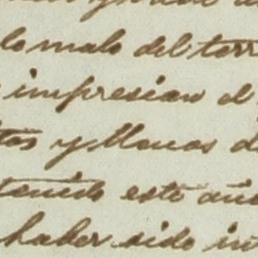 lo malo del terr
impresion el
tos y llenos d
tenido este año
haber sido in